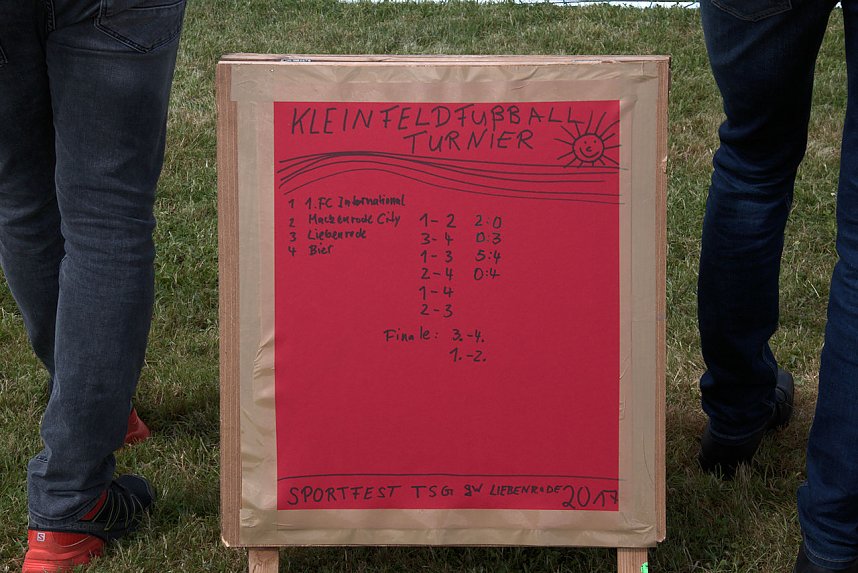 KLEINFELDFUßBALL
TURNIER
1 1. FC International
2 Mackenrode City
3 Liebenrode
4 Bier
1-2 2:0
3-4 0:3
1-3 5:4
2-4 0:4
1-4
2-3
Finale: 3.-4.
1.-2.
SPORTFEST TSG GW LIEBENRODE 2017